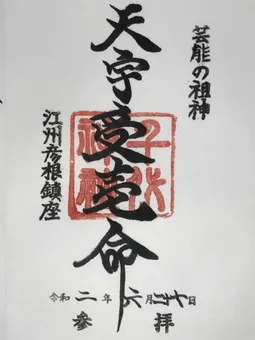 芸能の祖神
天宇受売命
千代
神社
江州彦根鎮座
令和二年六月二十日
参拝